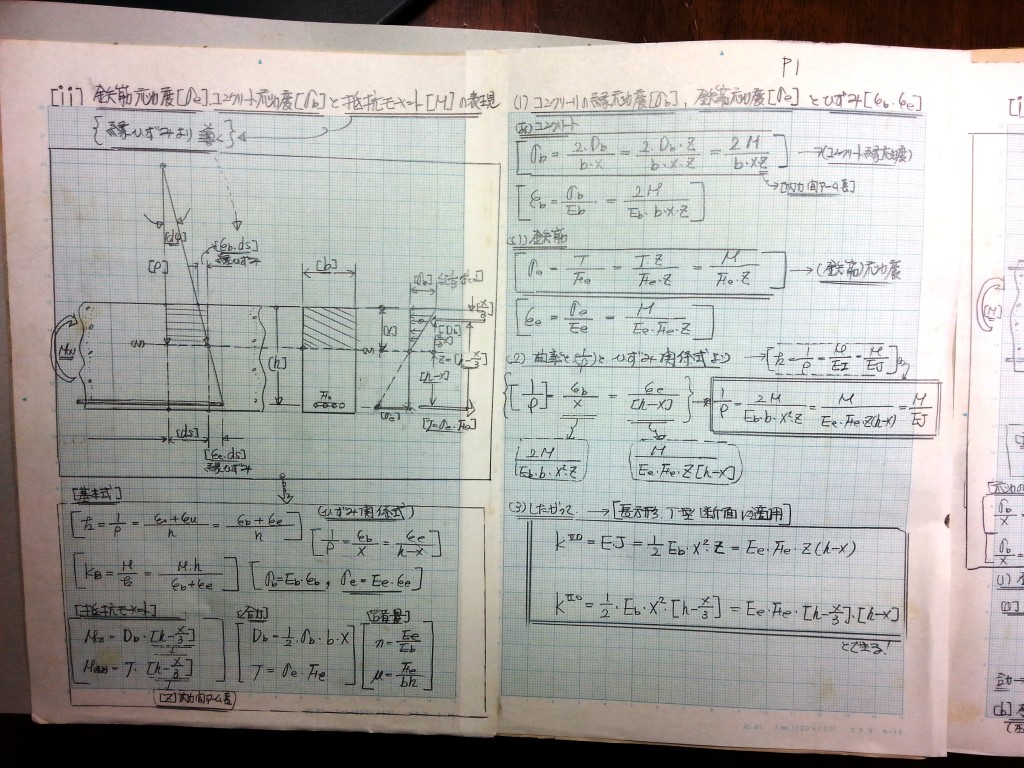 P1
[ii] 鉄筋応力度[σe],コンクリート応力度[σb]と抵抗モーメント[M]の表現
{縁ひずみより導く}
[dφ]
[ρ]
[εb・ds]
縁ひずみ
[b]
[σb]
[x/3]
[x]
[Db]
z=[h-x/3]
[h-x]
[h]
(N)
Fe
[σe]
[T=σe・Fe]
[ds]
[εe・ds]
縁ひずみ
[基本式]
(ひずみ関係式)
[1/ρ=εb/x=εe/h-x]
[σb=Eb・εb, σe=Ee・εe]
[抵抗モーメント]
Db・[h-x/3]
T・[h-x/3]
[Db=1/2・σb・b・x
T=σe・Fe]
[n=Ee/Eb
μ=Fe/bh]
[Z]内力間アーム長
(1) コンクリートの縁応力度[σb], 鉄筋応力度[σe]とひずみ[εb・εe]
(あ)コンクリート
[σb=2・Db/b・x=2・Db・Z/b・x・Z=2M/b・x・Z] →(コンクリート縁応力度)
→[内力間アーム長]
[εb=σb/Eb=2M/Eb・b・x・Z]
(い)鉄筋
[σe=T/Fe=T・Z/Fe・Z=M/Fe・Z] →(鉄筋)応力度
[εe=σe/Ee=M/Ee・Fe・Z]
(2) 曲率(1/ρ)とひずみ関係式より →[k=1/ρ=M/EI=M/EJ]
{[1/ρ]=εb/x=εe/[h-x]}
[1/ρ=2M/Eb・b・x²・Z=M/Ee・Fe・Z(h-x)=M/EJ]
[2M/Eb・b・x²・Z]
[M/Ee・Fe・Z[h-x]]
(3) したがって →[長方形,T型断面に適用]
=E・J=1/2 Eb・x²・Z=Ee・Fe・Z(h-x)
=1/2・Eb・x²・[h-x/3]=Ee・Fe・[h-x/3]・[h-x]
とできる!